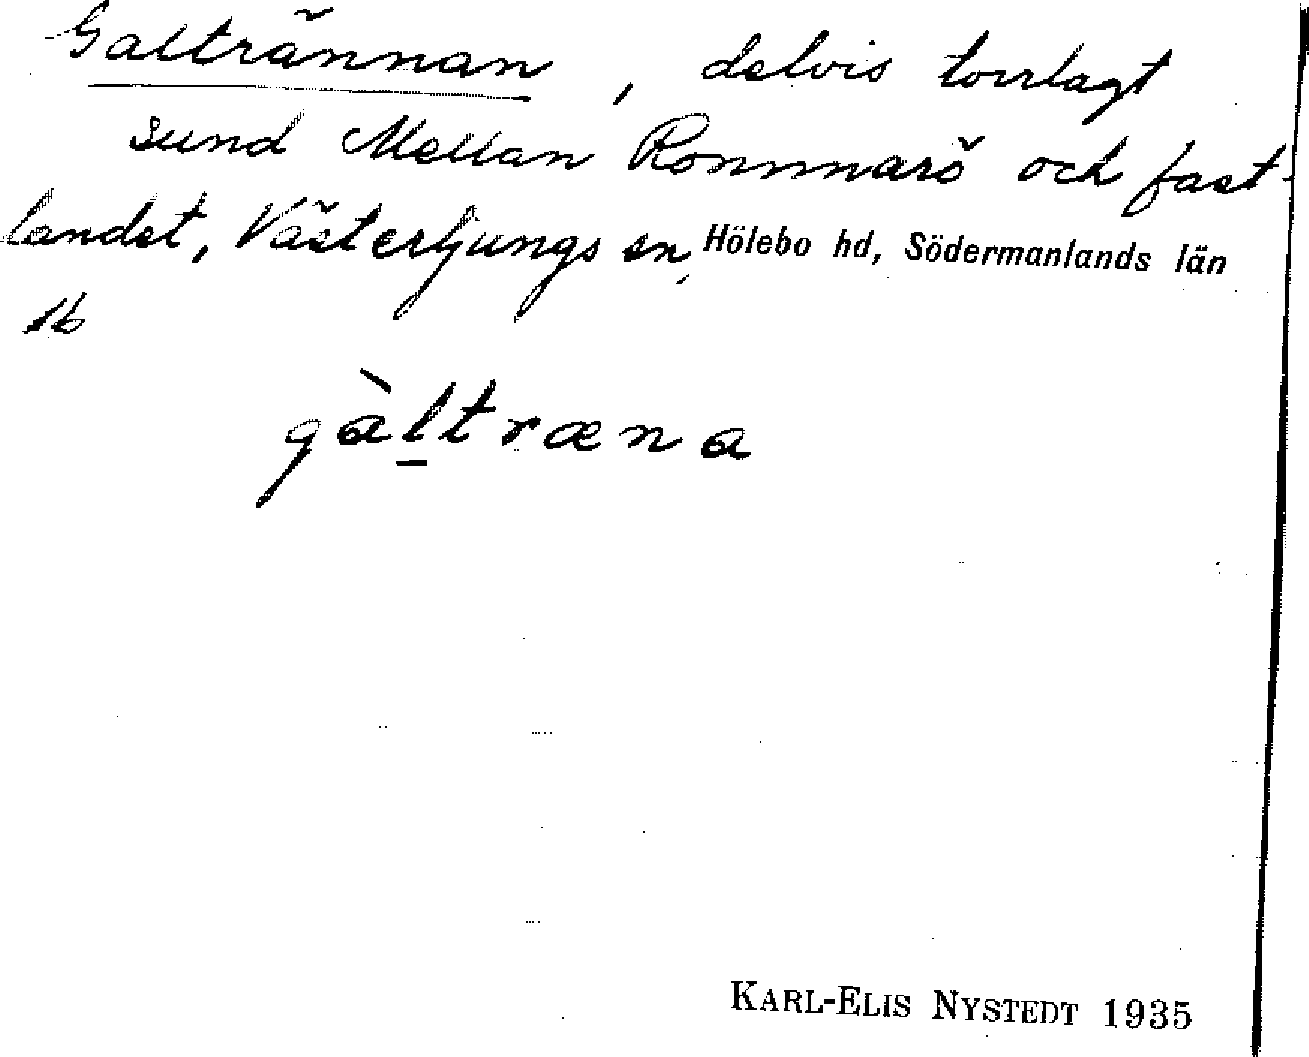 Galtrännan, delvis torrlagt
sund Mellan Rommarö och fast-
landet, Västerljungs sn, Hölebo hd, Södermanlands län
1b
gàltræna
KARL-ELIS NYSTEDT 1935